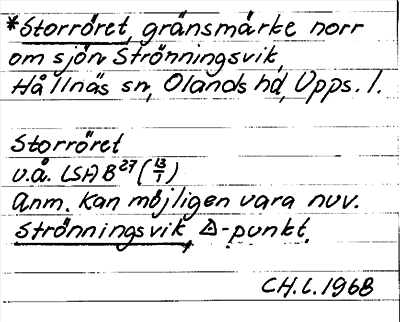 *Storröret, gränsmärke norr
om sjön Strönningsvik,
Hållnäs sn, Olands hd, Upps. l.
Storröret
u.å. LSA B 27 (13/1)
Anm. Kan möjligen vara nuv.
Strönningsvik, △-punkt.
CH.L. 1968